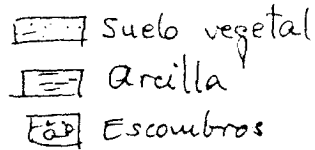 Suelo vegetal
Arcilla
Escombros